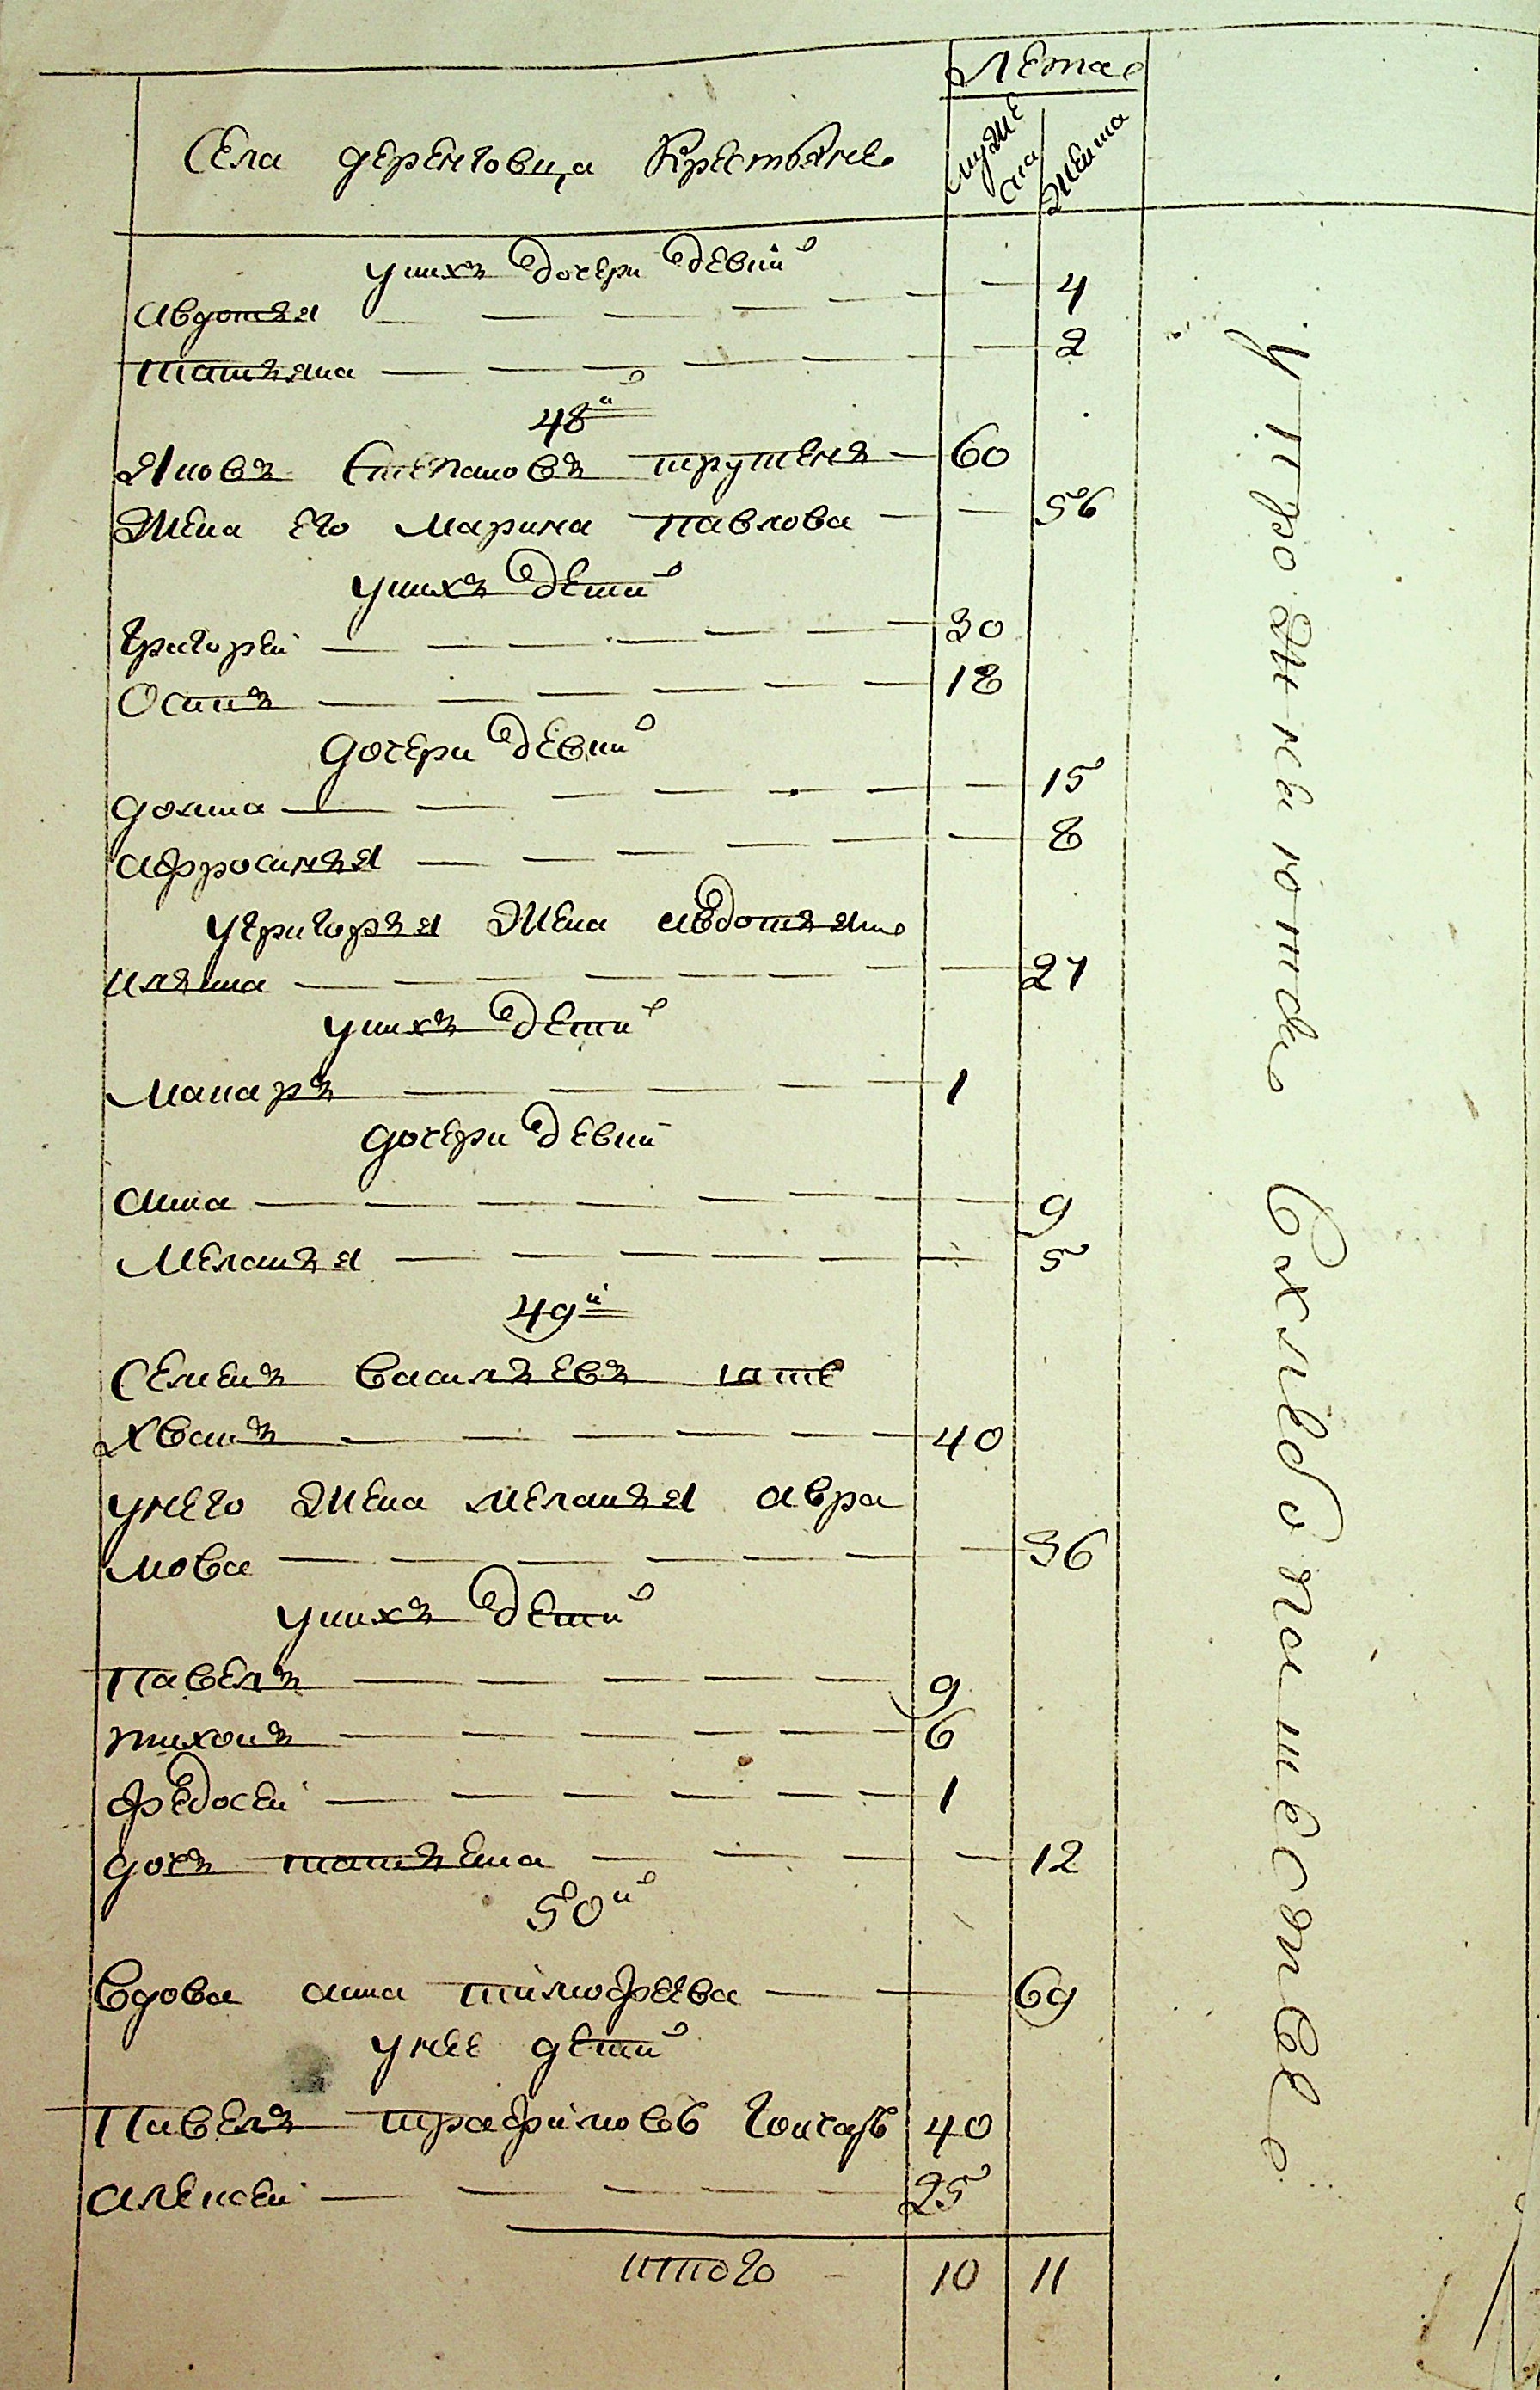 Села деренговца Крестьяне
Лета
мужеска
женска
у них дочери девки
Авдотъя 4
Татъяна 2
48й
Яковъ Степановъ трутенъ 60
Жена его Марина павлова 56
у нихъ дети
Григорей 30
Осипъ 18
дочери девки
домна 15
Афросинъя 8
у Григоръя жена Авдотъя
илъина 27
у нихъ дети
Макаръ 1
дочери девки
Анна 9
Меланъя 5
49й
Семенъ Василъевъ
хванъ 40
у него жена Меланъя Авра
мова 36
у нихъ дети
Павелъ 9
тихонъ 6
федосей 1
дочъ татъяна 12
50й
Вдова Анна тимофеева 69
у нее дети
Павелъ трафимовъ Гончаръ 40
Алексей 25
итого 10 11
упрожняютсь вхлебопашестве